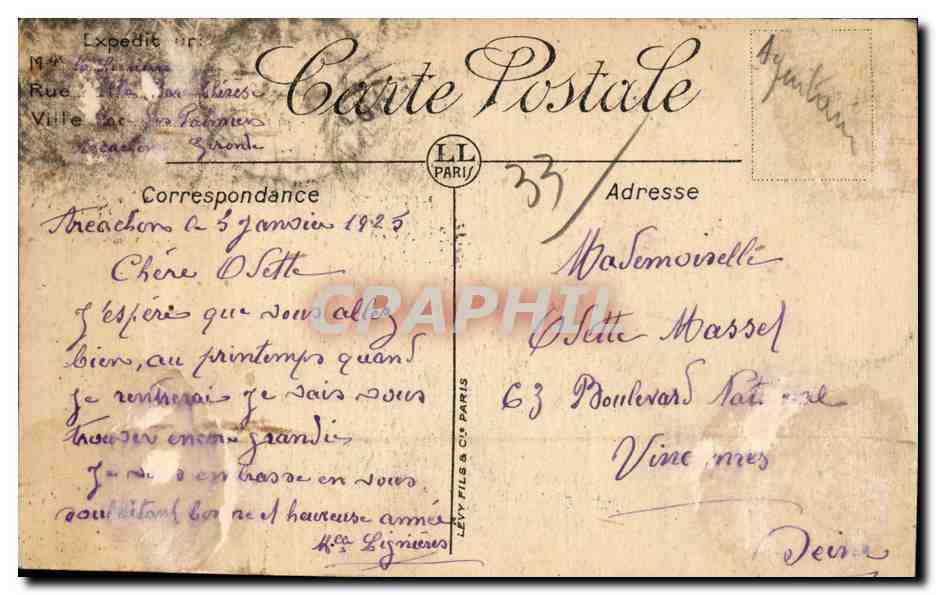 Expediteur:
Mme Lignières
Rue Villa Ste Thérèse
Ville Parc des Palmiers
Arcachon Gironde
Carte Postale
LL
PARIS
Aquitaine
33
Correspondance
Adresse
Arcachon le 5 Janvier 1925
Chère Odette
J'espère que vous allez
bien, au printemps quand
je rentrerai je vais vous
trouver encore grandie
Je vous embrasse en vous
souhaitant bonne et heureuse année
Lignières
LÉVY FILS & Cie PARIS
Mademoiselle
Odette Massel
63 Boulevard National
Vincennes
Seine
CRAPHIL